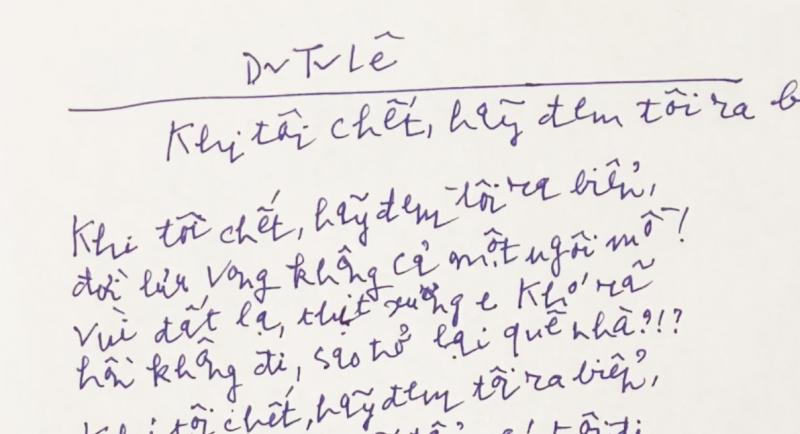 DuTuLê
Khi tôi chết, hãy đem tôi ra b
Khi tôi chết, hãy đem tôi ra biển,
đời lưu vong không cả một ngôi mồ!
vùi đất lạ, thịt xương e khó rã
hồn không đi, sao trở lại quê nhà?!?
Khi tôi chết, hãy đem tôi ra biển,
tôi đi